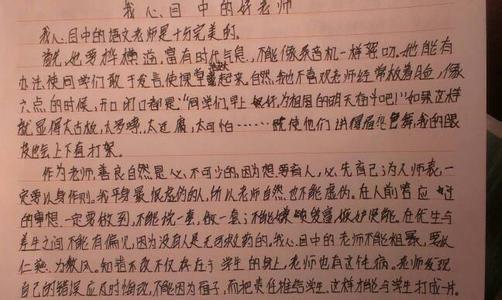 我心目中的好老师
我心目中的语文老师是十分完美的。
首先,他要桦横溢,富有时代气息,不能像录音机一样絮叨。他能有
办法使同学们敢于发言,使课堂起来。自然,我也不喜欢老师经常板着白脸,像
六点的时候,开口闭口都是:"同学们早上 好,为祖国的明天奋斗吧!"如果这样
就显得太古板,太罗嗦,太迂腐,太可怕……使他们讲得眉飞色舞,我的眼
皮也会上下直打架。
作为老师,善良自然是必不可少的,因为想要育人,必先自己为人师表,一
定要以身作则。我平身最恨虚伪的人,所以老师自然也不能虚伪。在人前答应过
的事想一定要做到,不能说一套,做一套;不能。在优生与
差生之间不能有偏见,因为没有人是无可救药的。我心目中的老师不能粗暴,要以
仁慈为教风。知错不改不仅存在于学生的身上,老师也有这传病。老师发现
自己的错误应及时悔改,不能因为面子,而把责任推给学生,这样才能与学生打成一片。